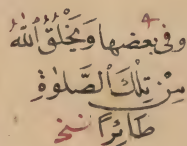 وفى بعضها وَيَخْلُقُ اللّٰهُ
مِنْ تِلْكَ الصَّلٰوةِ
طَائِراً نسخ